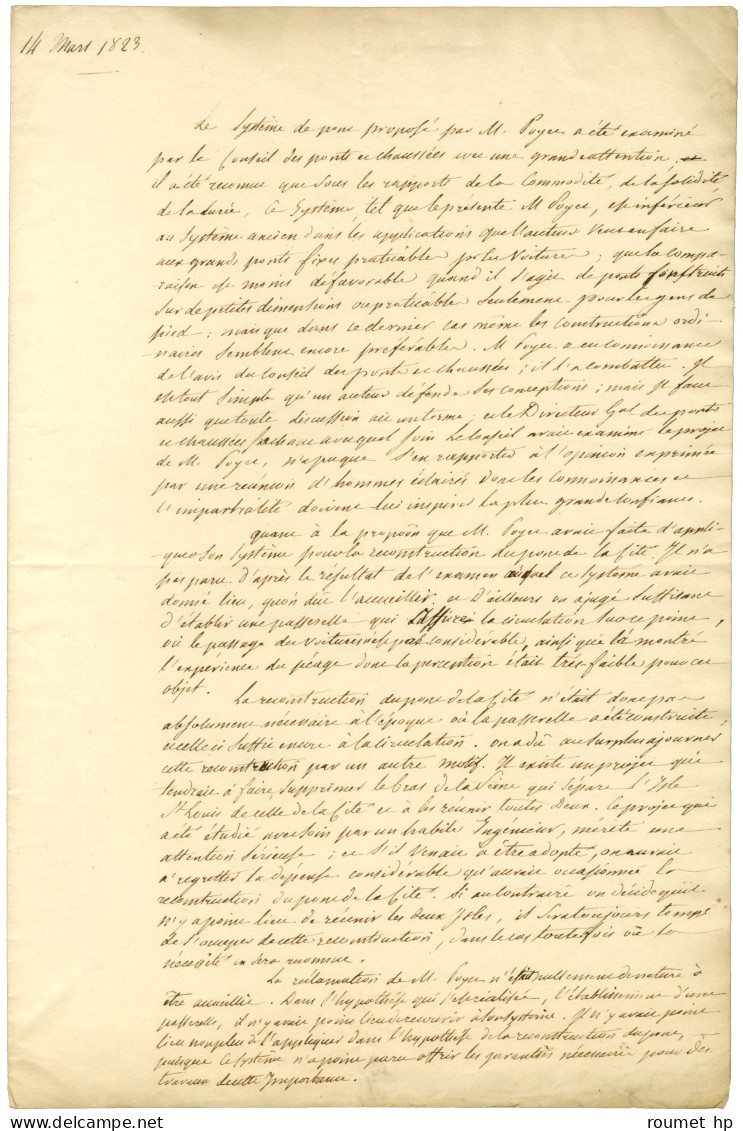 14 Mars 1823.
Le Système de pont proposé par M. Poyet a été examiné
par le Conseil des ponts et chaussées avec une grande attention; et
il a été reconnu que sous les rapports de la Commodité, de la solidité
de la durée, ce Système tel que le présente M Poyet, est inférieur
au Système ancien dans les applications que l'auteur veut en faire
aux grands ponts fixes praticables pr les Voitures; que la compa-
raison est moins défavorable quand il s'agit de ponts construits
sur de petites dimensions ou praticables seulement pour les gens de
pied; mais que dans ce dernier cas même les constructions ordi-
naires semblent encore préférables. M Poyet a eu connoissance
de l'avis du Conseil des ponts et chaussées; il l'a combattu. Il
est tout simple qu'un auteur défende ses conceptions; mais il faut
aussi que toute discussion ait un terme; et le Directeur Gal des ponts
et chaussées sachant avec quel soin le Conseil avait examiné le projet
de M. Poyet, n'a pu que s'en rapporter à l'opinion exprimée
par une réunion d'hommes éclairés dont les connoissances et
l'impartialité doivent lui inspirer la plus grande confiance.
quant à la propoon que M. Poyet avait faite d'appli-
quer son Système pour la reconstruction du pont de la Cité, Il n'a
pas paru d'après le résultat de l'examen auquel ce système avait
donné lieu, qu'on dût l'accueillir, et D'ailleurs on a jugé suffisant
d'établir une passerelle qui assure la circulation sur ce point,
où le passage des voitures n'est pas considérable, ainsi que l'a montré
l'expérience du péage dont la perception était très faible pour cet
objet.
La reconstruction du pont de la Cité n'était donc pas
absolument nécessaire à l'époque où la passerelle a été construite,
et celle-ci suffit encore à la circulation. on a dû au surplus ajourner
cette reconstruction par un autre motif. Il existe un projet qui
tendrait à faire supprimer le bras de la Seine qui sépare l'Isle
St Louis de celle de la Cité et à les réunir toutes Deux. Ce projet qui
a été étudié avec soin par un habile Ingénieur, mérite une
attention sérieuse; et s'il venait à être adopté, on aurait
à regretter la dépense considérable qu'aurait occasionnée la
reconstruction du pont de la Cité. Si au contraire on décide qu'il
n'y a point lieu de réunir les deux Isles, il sera toujours temps
de s'occuper de cette reconstruction, dans le cas toutefois où la
nécessité en sera reconnue.
La réclamation de M. Poyet n'était nullement de nature à
être accueillie. Dans l'hypothèse qui s'est réalisée, l'établissement d'une
passerelle, il n'y avait point lieu de recourir à son système. Il n'y avait point
lieu non plus de l'appliquer dans l'hypothèse de la reconstruction du pont,
puisque ce système n'a point paru offrir les garanties nécessaires pour des
travaux de cette Importance.
roumet hp
roumet hp